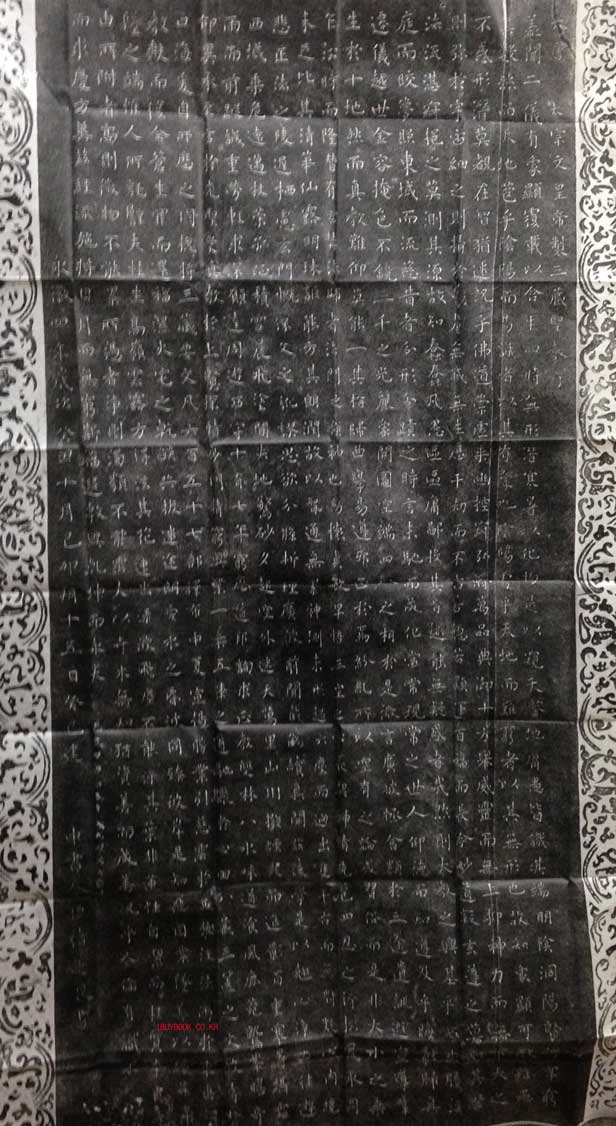 太宗文皇帝製三藏聖教序
蓋聞二儀有象顯覆載以含生四時無形潛寒暑以化物是以窺天鑒地庸愚皆識其端明陰洞陽賢哲罕窮
其數然而天地苞乎陰陽而易識者以其有象也陰陽處乎天地而難窮者以其無形也故知象顯可徵雖愚
不惑形潛莫覩在智猶迷況乎佛道崇虛乘幽控寂弘濟萬品典御十方舉威靈而無上抑神力而無下大之
則彌於宇宙細之則攝於毫釐無滅無生歷千劫而不古若隱若顯運百福而長今妙道凝玄遵之莫知其際
法流湛寂挹之莫測其源故知蠢蠢凡愚區區庸鄙投其旨趣能無疑惑者哉然則大教之興基乎西土騰漢
庭而皎夢照東域而流慈昔者分形分蹟之時言未馳而成化當常現常之世人仰德而知遵及乎晦影歸真
遷儀越世金容掩色不鏡三千之光麗象開圖空端四八之相於是微言廣被拯含類於三途遺訓遐宣導群
生於十地然而真教難仰莫能一其指歸曲學易遵邪正於焉紛糺所以空有之論或習俗而是非大小之乘
乍沿時而隆替有玄奘法師者法門之領袖也幼懷貞敏早悟三空之心長契神情先苞四忍之行松風水月
未足比其清華仙露明珠詎能方其朗潤故以智通無累神測未形超六塵而迥出隻千古而無對凝心內境
悲正法之陵遲栖慮玄門慨深文之訛謬思欲分條析理廣彼前聞截偽續真開茲後學是以翹心淨土往遊
西域乘危遠邁杖策孤征積雪晨飛途間失地驚砂夕起空外迷天萬里山川撥煙霞而進影百重寒暑躡霜
雨而前蹤誠重勞輕求深願達周遊西宇十有七年窮歷道邦詢求正教雙林八水味道飡風鹿菀鷲峯瞻奇
仰異承至言於先聖受真教於上賢探賾妙門精窮奧業一乘五律之道馳驟於心田八藏三篋之文波濤於
口海爰自所歷之國揔將三藏要文凡六百五十七部譯布中夏宣揚勝業引慈雲於西極注法雨於東陲聖
教缺而復全蒼生罪而還福濕火宅之乾燄共拔迷途朗愛水之昏波同臻彼岸是知惡因業墜善以緣昇昇
墜之端惟人所託譬夫桂生高嶺雲露方得泫其花蓮出淥波飛塵不能汙其葉非蓮性自潔而桂質本貞良
由所附者高則微物不能累所憑者淨則濁類不能霑夫以卉木無知猶資善而成善況乎人倫有識不
而求慶方冀茲經流施將日月而無窮斯福遐敷與乾坤而永大
永徽四年歲次癸丑十月己卯朔十五日癸巳建 中書令臣褚遂良書
IBUYBOOK.CO.KR